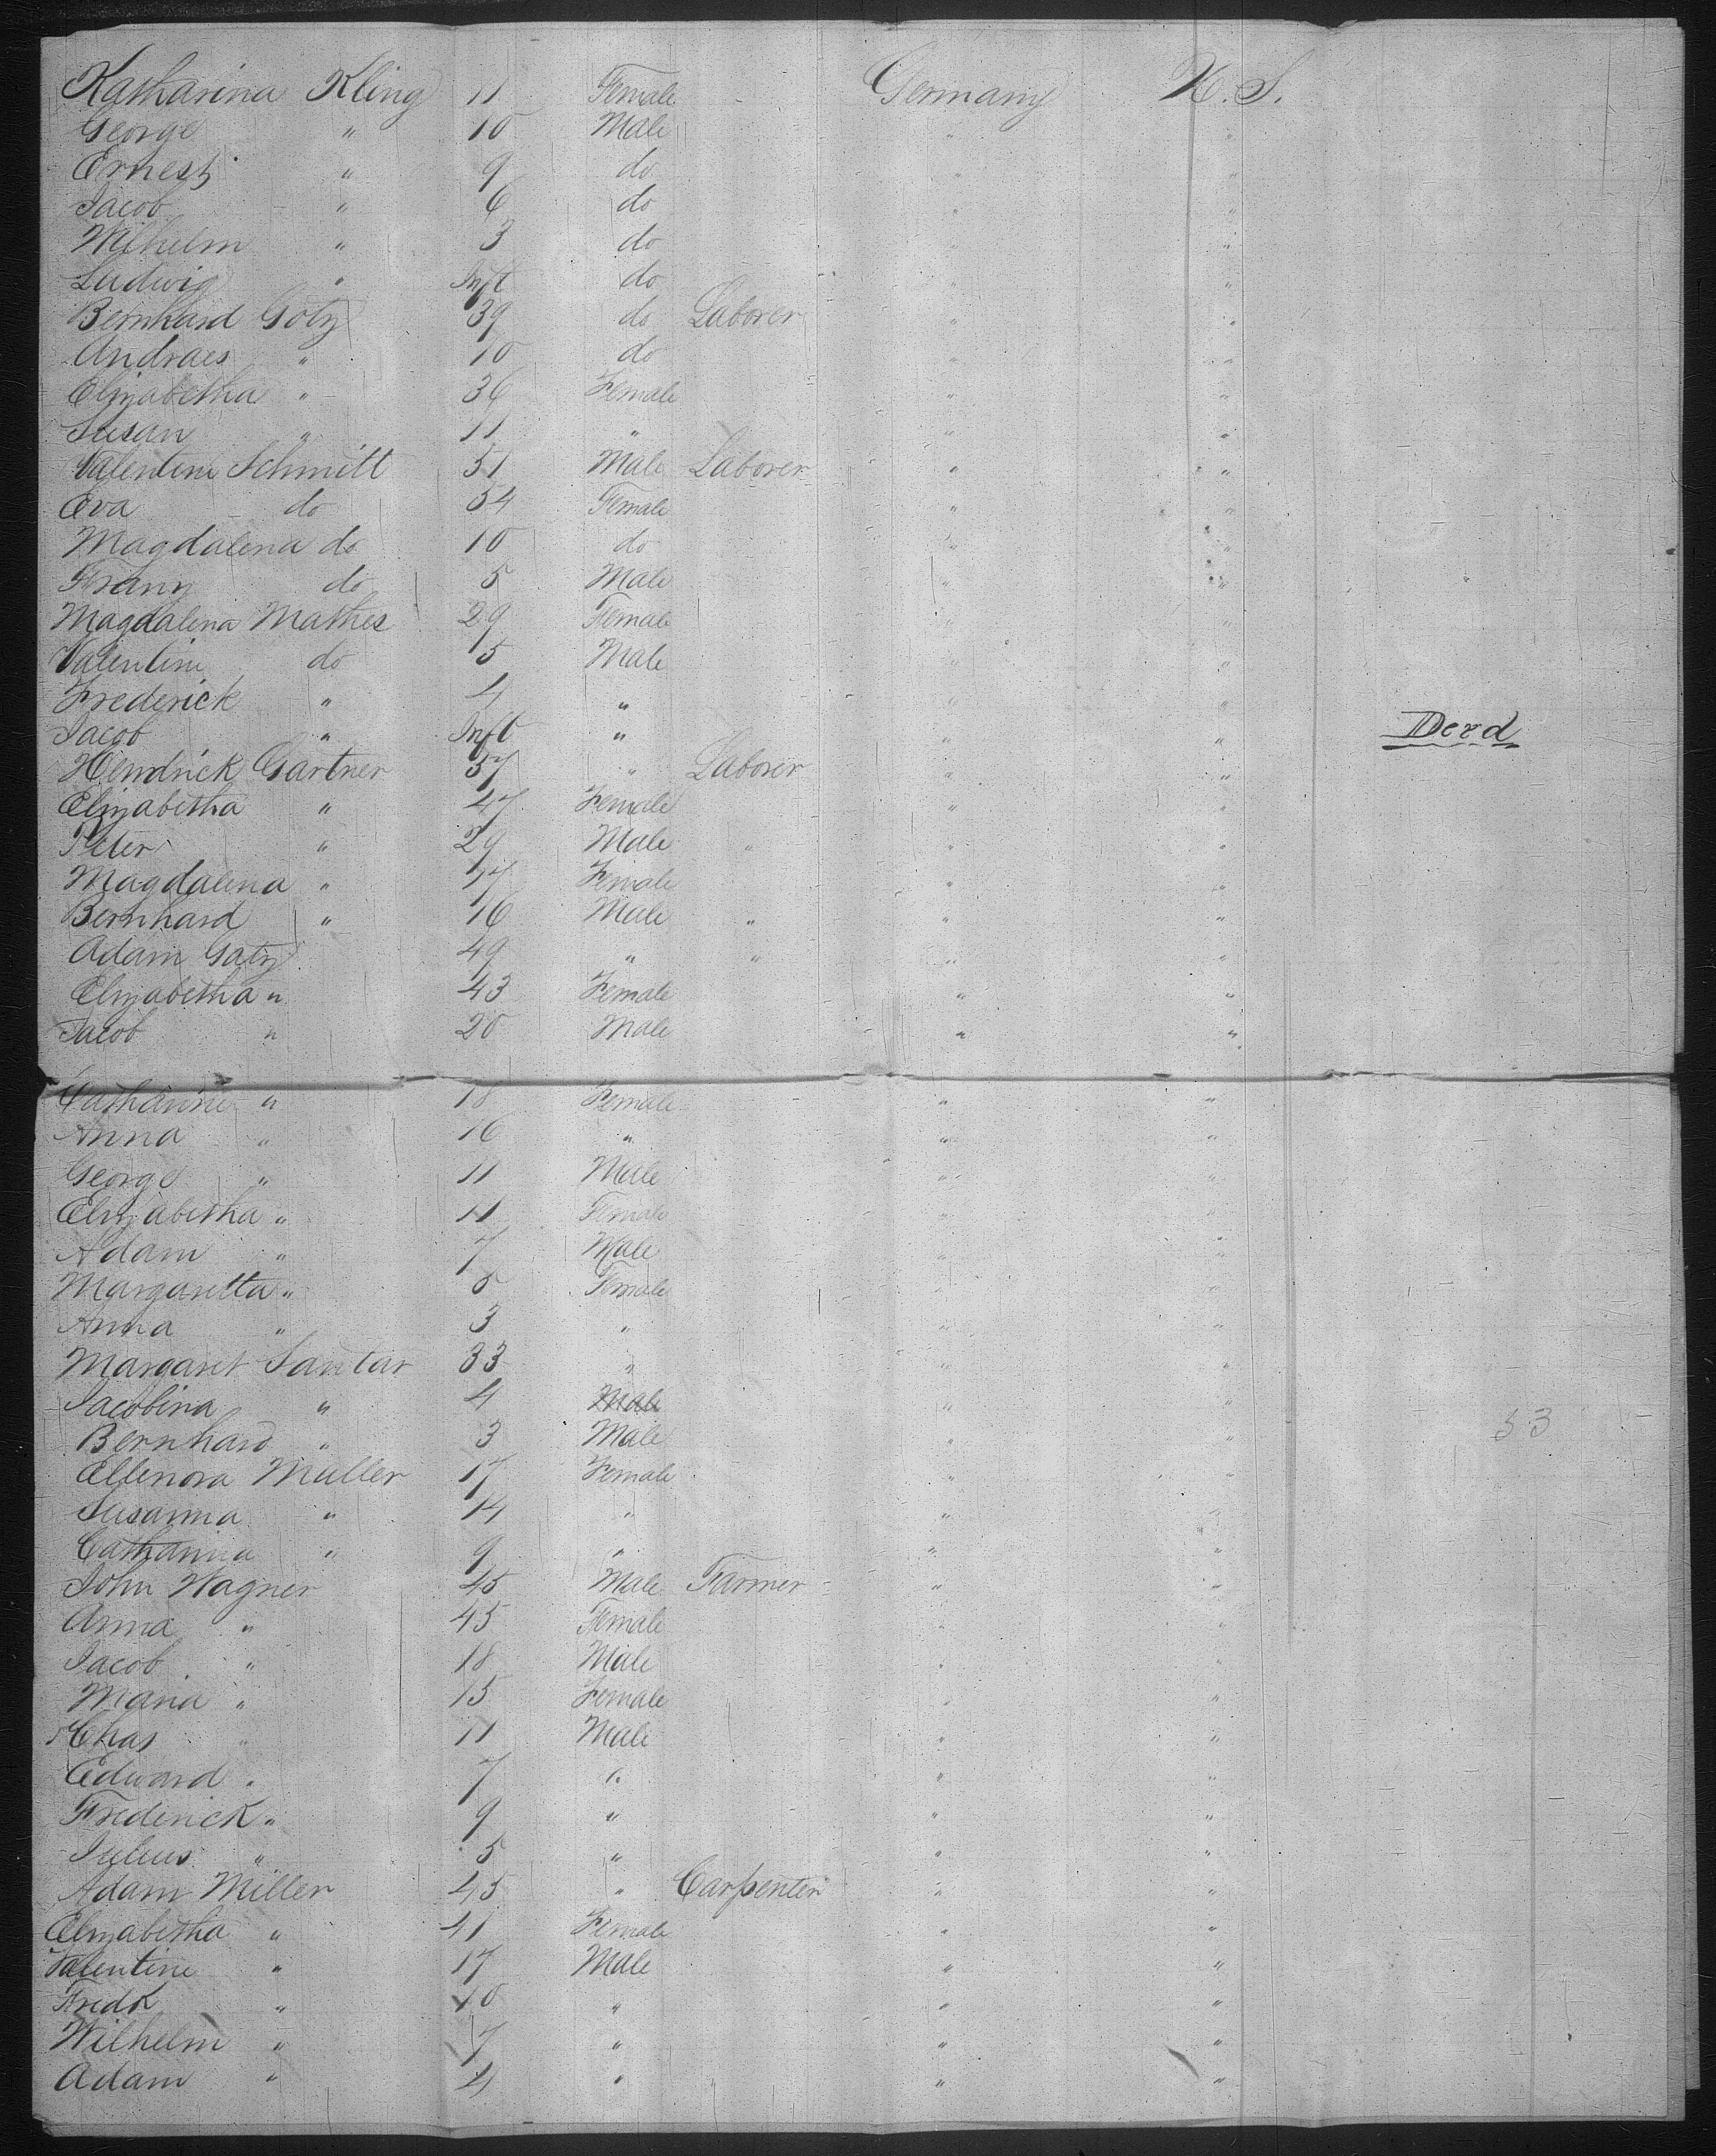 Katharina Kling 11 Female Germany U.S.
George " 10 Male " "
Ernest " 9 do " "
Jacob " 6 do " "
Wilhelm " 3 do " "
Ludwig " Inft do " "
Bernhard Götz 39 do Laborer " "
Andraes " 10 do " "
Elizabetha " 36 Female " "
Susan " 11 " " "
Valentine Schmitt 51 Male Laborer " "
Eva do 54 Female " "
Magdalena do 10 do " "
Franz do 5 Male " "
Magdalena Mathes 29 Female " "
Valentine do 5 Male " "
Frederick " 4 " " "
Jacob " Inft " " " Decd
Hendrick Gartner 57 " Laborer " "
Elizabetha " 47 Female " "
Peter " 29 Male " " "
Magdalena " 17 Female " "
Bernhard " 16 Male " " "
Adam Gatz 49 " " " "
Elizabetha " 43 Female " "
Jacob " 20 Male " "
Catharine " 18 Female " "
Anna " 16 " " "
George " 11 Male " "
Elizabetha " 11 Female " "
Adam " 7 Male " "
Margaretta " 5 Female " "
Anna " 3 " " "
Margaret Santar 33 " " "
Jacobina " 4 Male " "
Bernhard " 3 Male " " 53
Ellenora Muller 17 Female " "
Susanna " 14 " " "
Catharina " 9 " " "
John Wagner 45 Male Farmer " "
Anna " 45 Female "
Jacob " 18 Male " "
Maria " 15 Female " "
Chas " 11 Male " "
Edward " 7 " " "
Frederick " 9 " " "
Julius " 5 " " "
Adam Miller 45 " Carpenter " "
Elizabetha " 41 Female " "
Valentine " 17 Male " "
Fredk " 10 " " "
Wilhelm " 7 " " "
Adam " 4 " " "